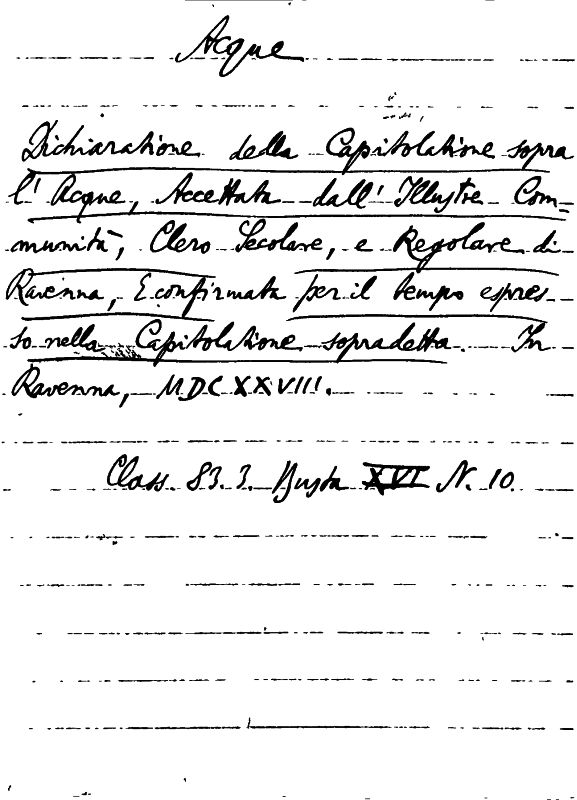 Acque
Dichiaratione della Capitolatione sopra
l' Acque, Accettata dall' Illustre Com-
munità, Clero Secolare, e Regolare di
Ravenna, E confirmata per il tempo espres-
so nella Capitolatione sopradetta. In
Ravenna, MDCXXVIII.
Class. 83.3. Busta XVI N. 10.